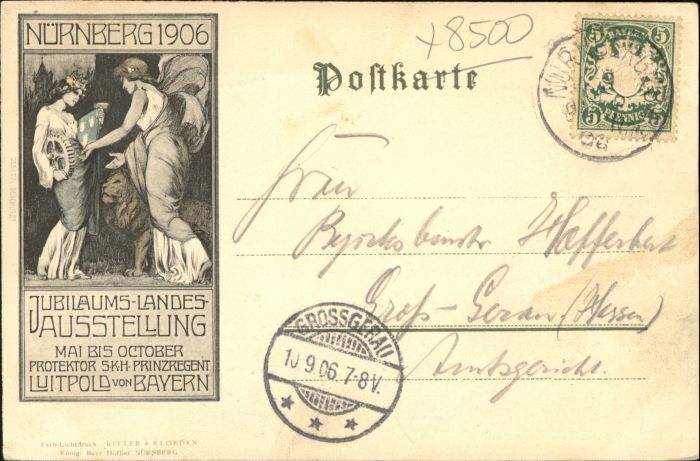 NÜRNBERG 1906
JUBILAUMS-LANDES-
AUSSTELLUNG
MAI BIS OCTOBER
PROTEKTOR S.K.H. PRINZREGENT
LUITPOLD VON BAYERN
Farb-Lichtdruck RITTER & KLOEDEN
Königl Bayr Hoflief NÜRNBERG
+8500
Postkarte
5 BAYERN 5
5 PFENNIG 5
Groß-Gerau (Hessen)
Amtsgericht.
GROSSGERAU
10 9.06.7-8V.